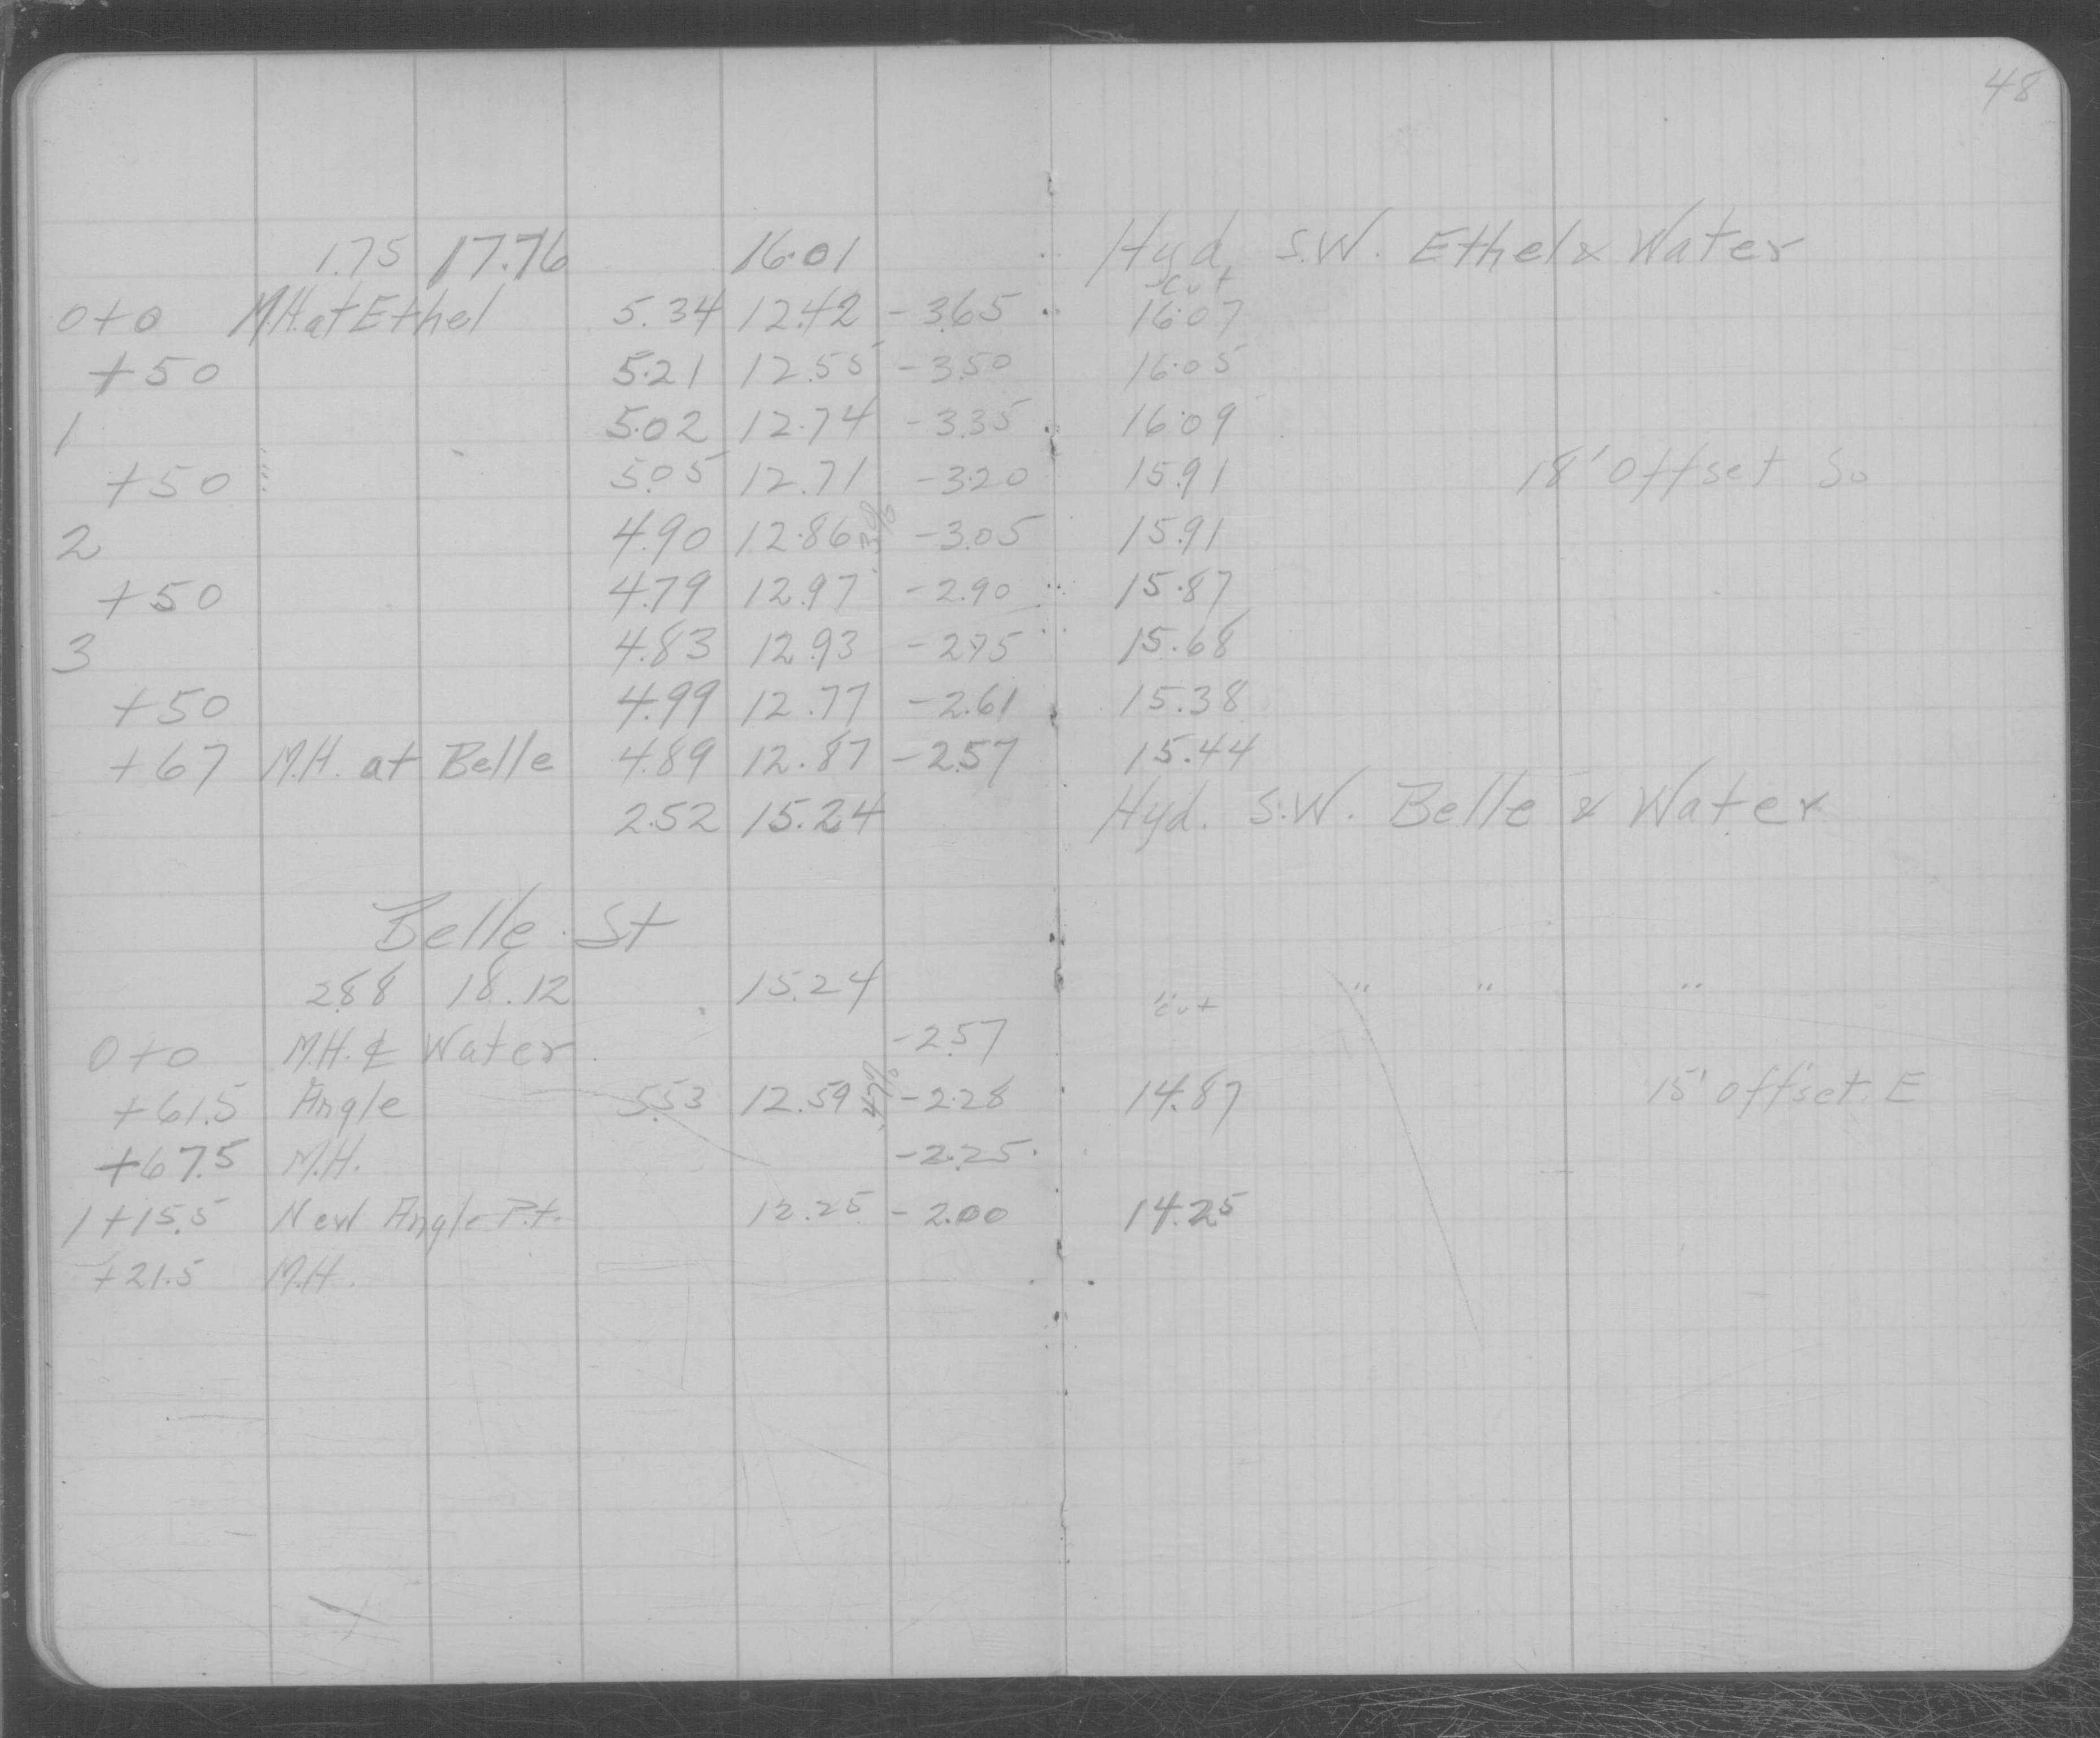 48
1.75 17.76 16.01 Hyd. S.W. Ethel & Water
Cut
0+0 M.H. at Ethel 5.34 12.42 -3.65 16.07
+50 5.21 12.55 -3.50 16.05
1 5.02 12.74 -3.35 16.09
+50 5.05 12.71 -3.20 15.91 18' Offset So
2 4.90 12.86 .3% -3.05 15.91
+50 4.79 12.97 -2.90 15.87
3 4.83 12.93 -2.75 15.68
+50 4.99 12.77 -2.61 15.38
+67 M.H. at Belle 4.89 12.87 -2.57 15.44
2.52 15.24 Hyd. S.W. Belle & Water
Belle St
2.88 18.12 15.24 " " " "
Cut
0+0 M.H. ₵ Water -2.57
+61.5 Angle 5.53 12.59 .47% -2.28 14.87 15' offset E
+67.5 M.H. -2.25
1+15.5 New Angle Pt. 12.25 -2.00 14.25
+21.5 M.H.